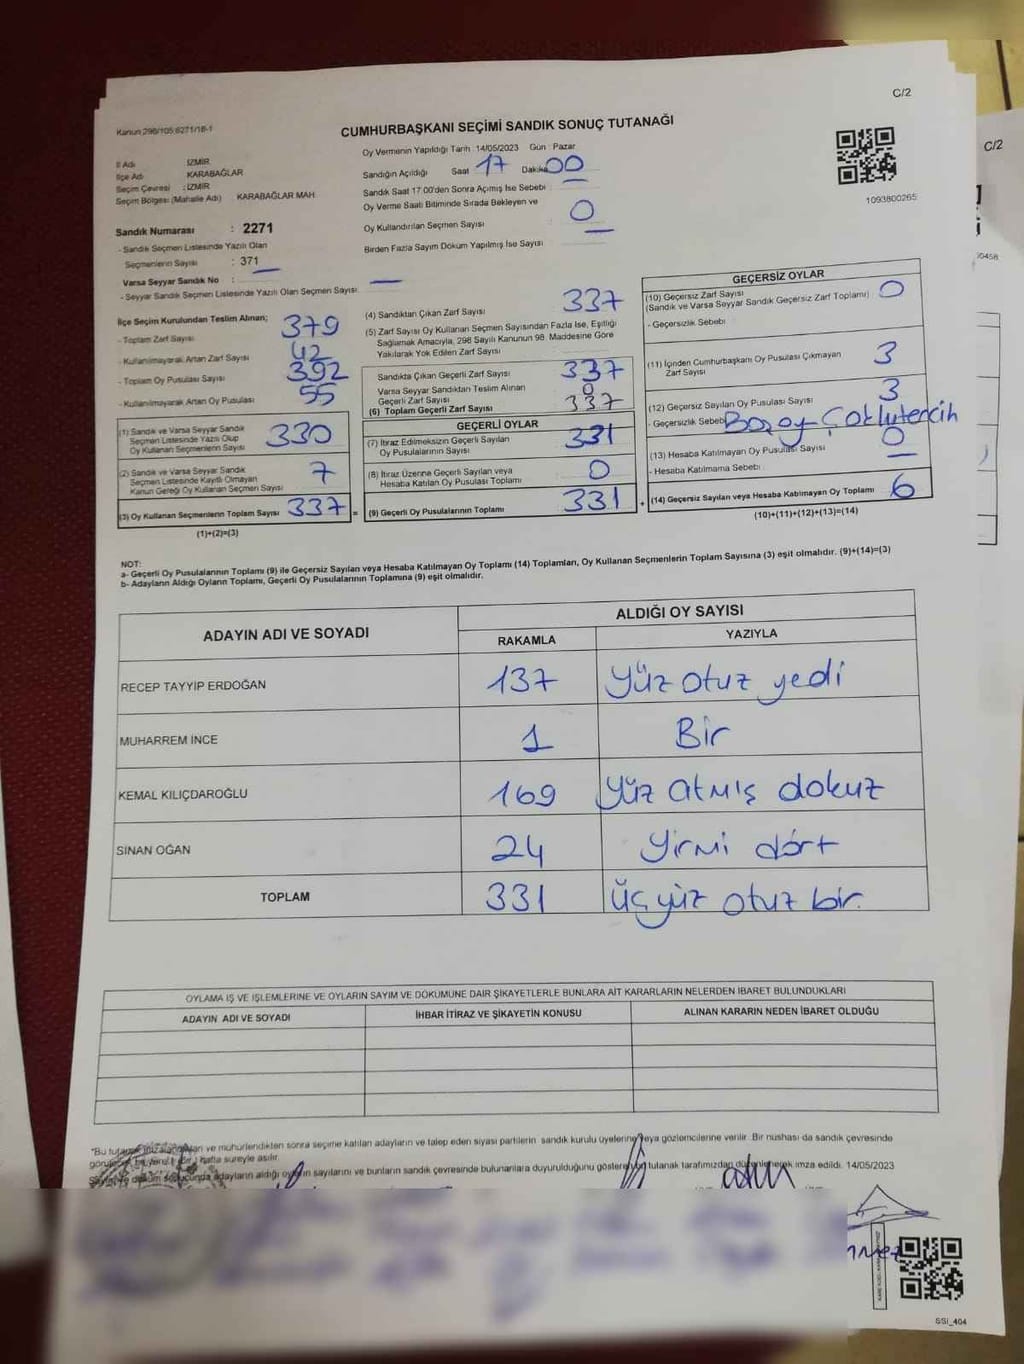 C/2
Kanun 298/105 6271/18-1
CUMHURBAŞKANI SEÇİMİ SANDIK SONUÇ TUTANAĞI
İl Adı : İZMİR
İlçe Adı : KARABAĞLAR
Seçim Çevresi : İZMİR
Seçim Bölgesi (Mahalle Adı) KARABAĞLAR MAH.
Oy Vermenin Yapıldığı Tarih :14/05/2023 Gün : Pazar
Sandığın Açıldığı Saat 17 Dakika 00
Sandık Saat 17 00'den Sonra Açılmış İse Sebebi
Oy Verme Saati Bitiminde Sırada Bekleyen ve
Oy Kullandırılan Seçmen Sayısı 0
Birden Fazla Sayım Döküm Yapılmış İse Sayısı
1093800265
Sandık Numarası : 2271
- Sandık Seçmen Listesinde Yazılı Olan
Seçmenlerin Sayısı : 371
Varsa Seyyar Sandık No :
- Seyyar Sandık Seçmen Listesinde Yazılı Olan Seçmen Sayısı
İlçe Seçim Kurulundan Teslim Alınan;
- Toplam Zarf Sayısı 379
- Kullanılmayarak Artan Zarf Sayısı 42
- Toplam Oy Pusulası Sayısı 392
- Kullanılmayarak Artan Oy Pusulası 55
(1) Sandık ve Varsa Seyyar Sandık
Seçmen Listesinde Yazılı Olup
Oy Kullanan Seçmenlerin Sayısı 330
(2) Sandık ve Varsa Seyyar Sandık
Seçmen Listesinde Kayıtlı Olmayan
Kanun Gereği Oy Kullanan Seçmen Sayısı 7
(3) Oy Kullanan Seçmenlerin Toplam Sayısı 337
(1)+(2)=(3)
(4) Sandıktan Çıkan Zarf Sayısı 337
(5) Zarf Sayısı Oy Kullanan Seçmen Sayısından Fazla İse, Eşitliği
Sağlamak Amacıyla, 298 Sayılı Kanunun 98. Maddesine Göre
Yakılarak Yok Edilen Zarf Sayısı
Sandıkta Çıkan Geçerli Zarf Sayısı 337
Varsa Seyyar Sandıktan Teslim Alınan
Geçerli Zarf Sayısı 0
(6) Toplam Geçerli Zarf Sayısı 337
GEÇERLİ OYLAR
(7) İtiraz Edilmeksizin Geçerli Sayılan
Oy Pusulalarının Sayısı 331
(8) İtiraz Üzerine Geçerli Sayılan veya
Hesaba Katılan Oy Pusulası Toplamı 0
(9) Geçerli Oy Pusulalarının Toplamı 331
GEÇERSİZ OYLAR
(10) Geçersiz Zarf Sayısı 0
(Sandık ve Varsa Seyyar Sandık Geçersiz Zarf Toplamı)
- Geçersizlik Sebebi
(11) İçinden Cumhurbaşkanı Oy Pusulası Çıkmayan
Zarf Sayısı 3
(12) Geçersiz Sayılan Oy Pusulası Sayısı 3
- Geçersizlik Sebebi
(13) Hesaba Katılmayan Oy Pusulası Sayısı 0
- Hesaba Katılmama Sebebi
(14) Geçersiz Sayılan veya Hesaba Katılmayan Oy Toplamı 6
(10)+(11)+(12)+(13)=(14)
NOT:
a- Geçerli Oy Pusulalarının Toplamı (9) ile Geçersiz Sayılan veya Hesaba Katılmayan Oy Toplamı (14) Toplamları, Oy Kullanan Seçmenlerin Toplam Sayısına (3) eşit olmalıdır. (9)+(14)=(3)
b- Adayların Aldığı Oyların Toplamı, Geçerli Oy Pusulalarının Toplamına (9) eşit olmalıdır.
ADAYIN ADI VE SOYADI
ALDIĞI OY SAYISI
RAKAMLA YAZIYLA
RECEP TAYYİP ERDOĞAN 137 Yüz otuz yedi
MUHARREM İNCE 1 Bir
KEMAL KILIÇDAROĞLU 169 Yüz atmış dokuz
SİNAN OĞAN 24 Yirmi dört
TOPLAM 331 Üç yüz otuz bir.
OYLAMA İŞ VE İŞLEMLERİNE VE OYLARIN SAYIM VE DÖKÜMÜNE DAİR ŞİKAYETLERLE BUNLARA AİT KARARLARIN NELERDEN İBARET BULUNDUKLARI
ADAYIN ADI VE SOYADI İHBAR İTİRAZ VE ŞİKAYETİN KONUSU ALINAN KARARIN NEDEN İBARET OLDUĞU
"Bu ve mühürlendikten sonra seçime katılan adayların ve talep eden siyasi partilerin sandık kurulu üyelerine veya gözlemcilerine verilir. Bir nüshası da sandık çevresinde
hafta süreyle asılır.
adayların aldığı oyların sayılarını ve bunların sandık çevresinde bulunanlara duyurulduğunu gösteren tutanak tarafımızdan düzenlenerek imza edildi. 14/05/2023
SSI_404
C/2